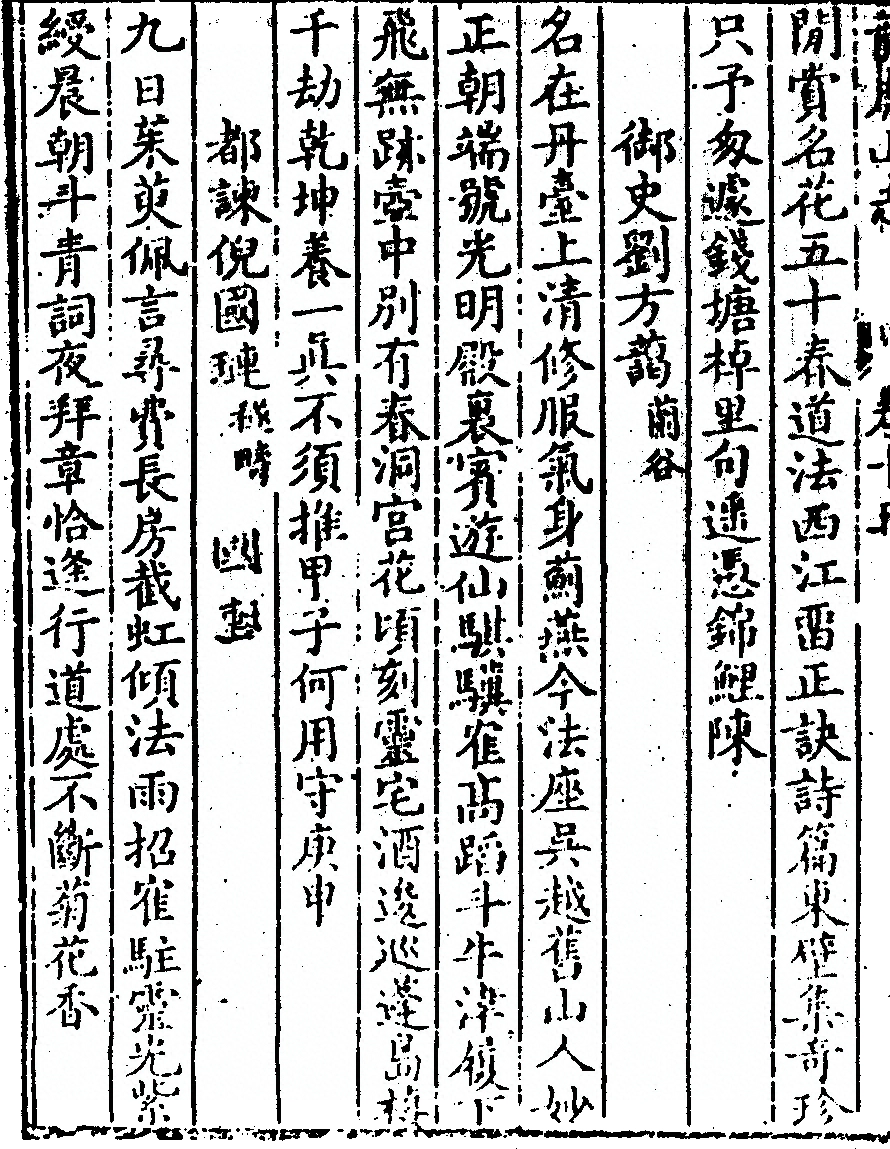 閒賞名花五十春道法西江雷正訣詩篇東壁集奇珍
只予匆遽錢塘棹里句遥憑錦鯉陳
御史劉方藹蘭谷
名在丹臺上清修服氣身薊燕今法座吳越舊山人妙
正朝端號光明殿裏賓遊仙騏驥隺髙蹈斗牛津領下
飛無跡壺中别有春洞宫花頃刻靈宅酒逡廵蓬島
千劫乾坤養一眞不須推甲子何用守庚申
都諫倪國璉穟疇 國璉
九日茱萸佩言尋費長房截虹傾法雨招隺駐靈光紫
綬晨朝斗青詞夜拜章恰逢行道處不斷菊花香